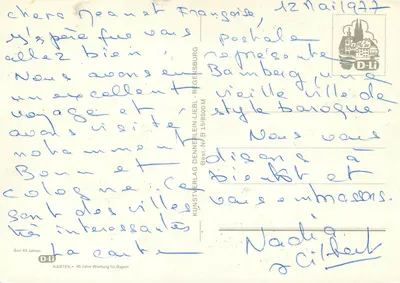 12 Mai 1977
chers Jean et Françoise,
J'espère que vous
allez bien.
Nous avons eu
un excellent
voyage et
avons visité
notamment
Bonn et
Cologne. Ce
sont des villes
très intéressantes
La carte
postale
représente
Bamberg, une
vieille ville de
style baroque.
Nous vous
disons à
bientôt et
vous embrassons.
Nadia
Gilbert
KUNSTVERLAG DENNERLEIN-LIEBL · REGENSBURG
Best.-Nr. B 15/9800 M
D-Li
D-Li